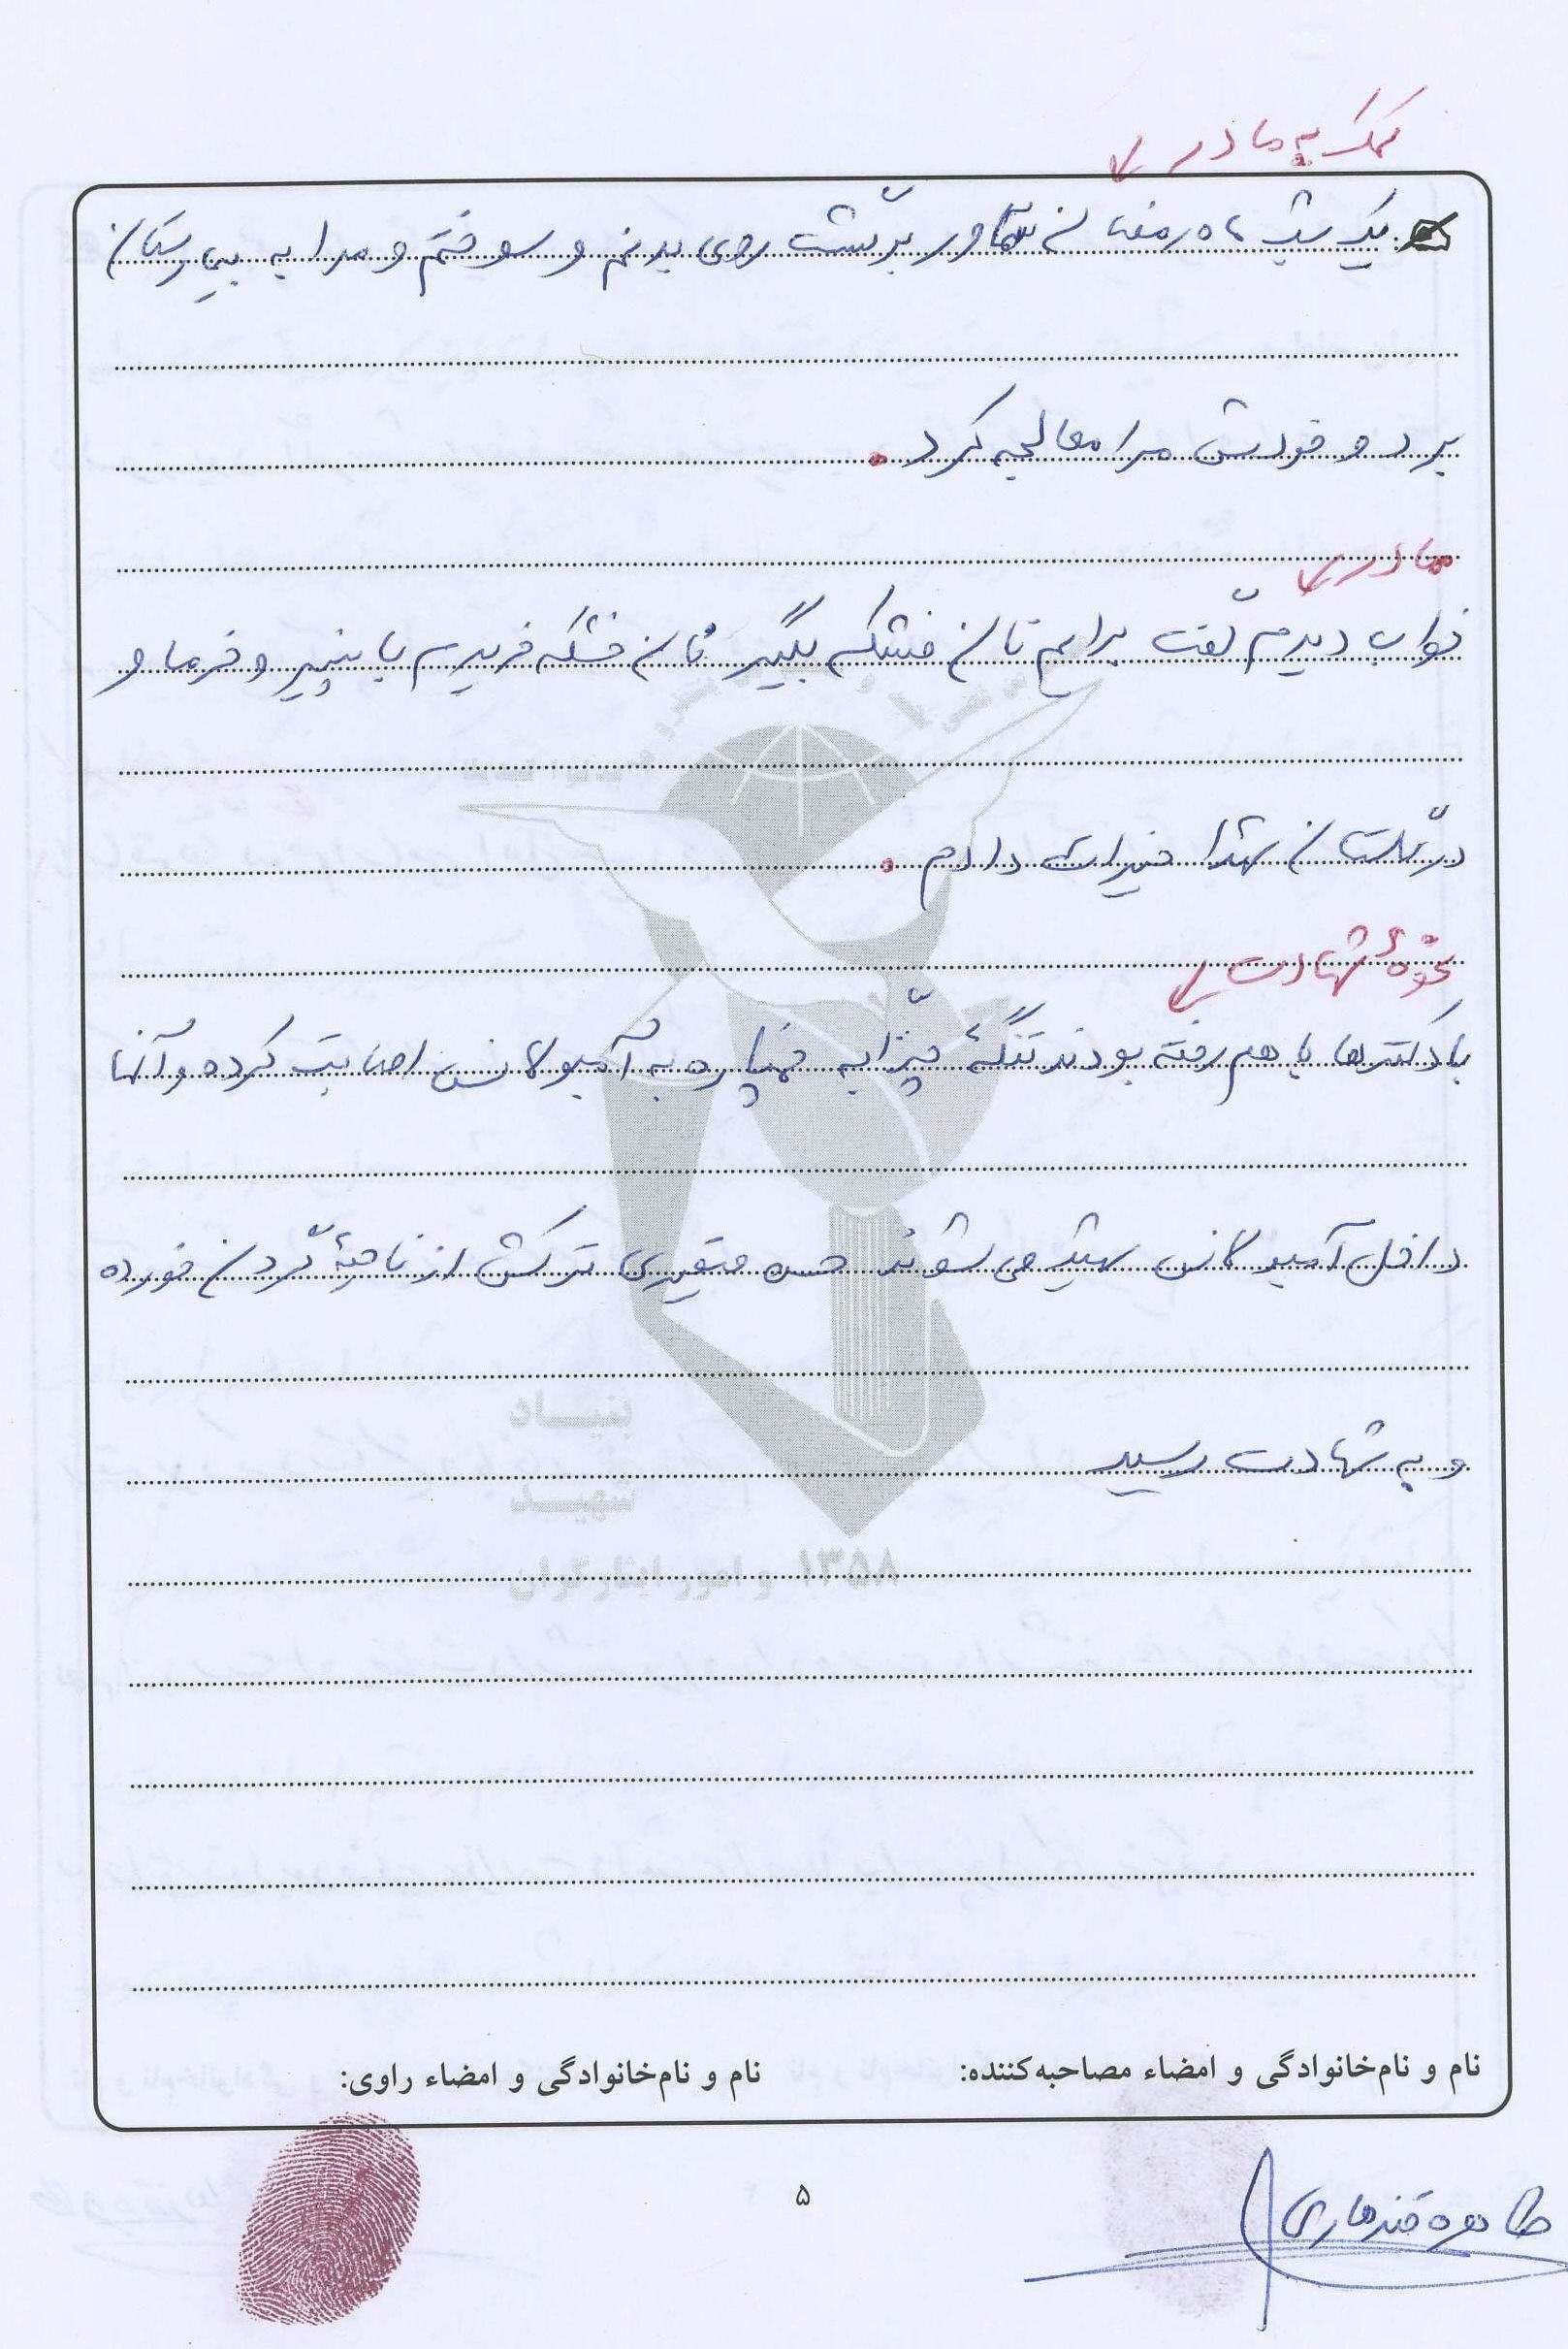 کمک به مادر
یک شب ماه رمضان سماور برگشت روی بدنم و سوختم و مرا به بیمارستان
برد و خودش مرا معالجه کرد.
مادر
خواب دیدم گفت برایم نان خشکه بگیر نان خشکه خریدم با پنیر و خرما و
در گلستان شهدا خیرات دادم.
نحوهٔ شهادت
با دکترها با هم رفته بودند تنگهٔ چزابه خمپاره به آمبولانس اصابت کرده و آنها
داخل آمبولانس شهید می شوند حسن ترکش از ناحیهٔ گردن خورده
و به شهادت رسید
بنیاد
شهید
و امور ایثارگران ۱۳۵۸
نام و نام‌خانوادگی و امضاء مصاحبه‌کننده: نام و نام‌خانوادگی و امضاء راوی:
۵
طاهره قندهاری